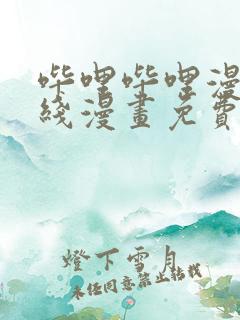 哔哩哔哩漫
綫漫畫免費
燈下雪月
未经同意禁止转载